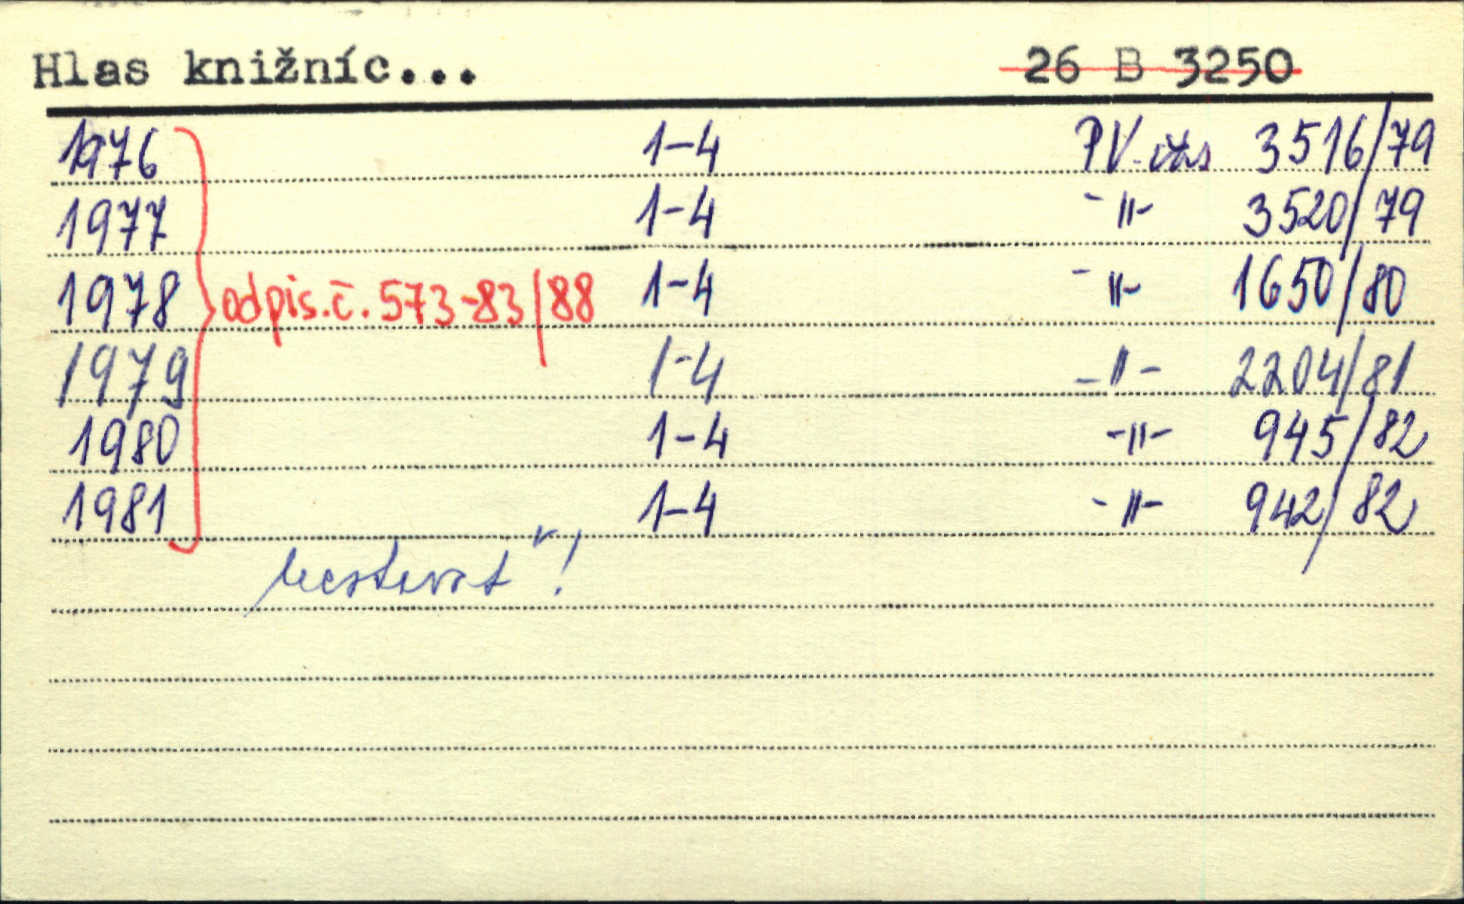 Hlas knižníc... 26 B 3250
1976 1-4 PV 3516/79
1977 1-4 -"- 3520/79
1978 odpis.č. 573-83/88 1-4 -"- 1650/80
1979 1-4 -"- 2204/81
1980 1-4 -"- 945/82
1981 1-4 -"- 942/82